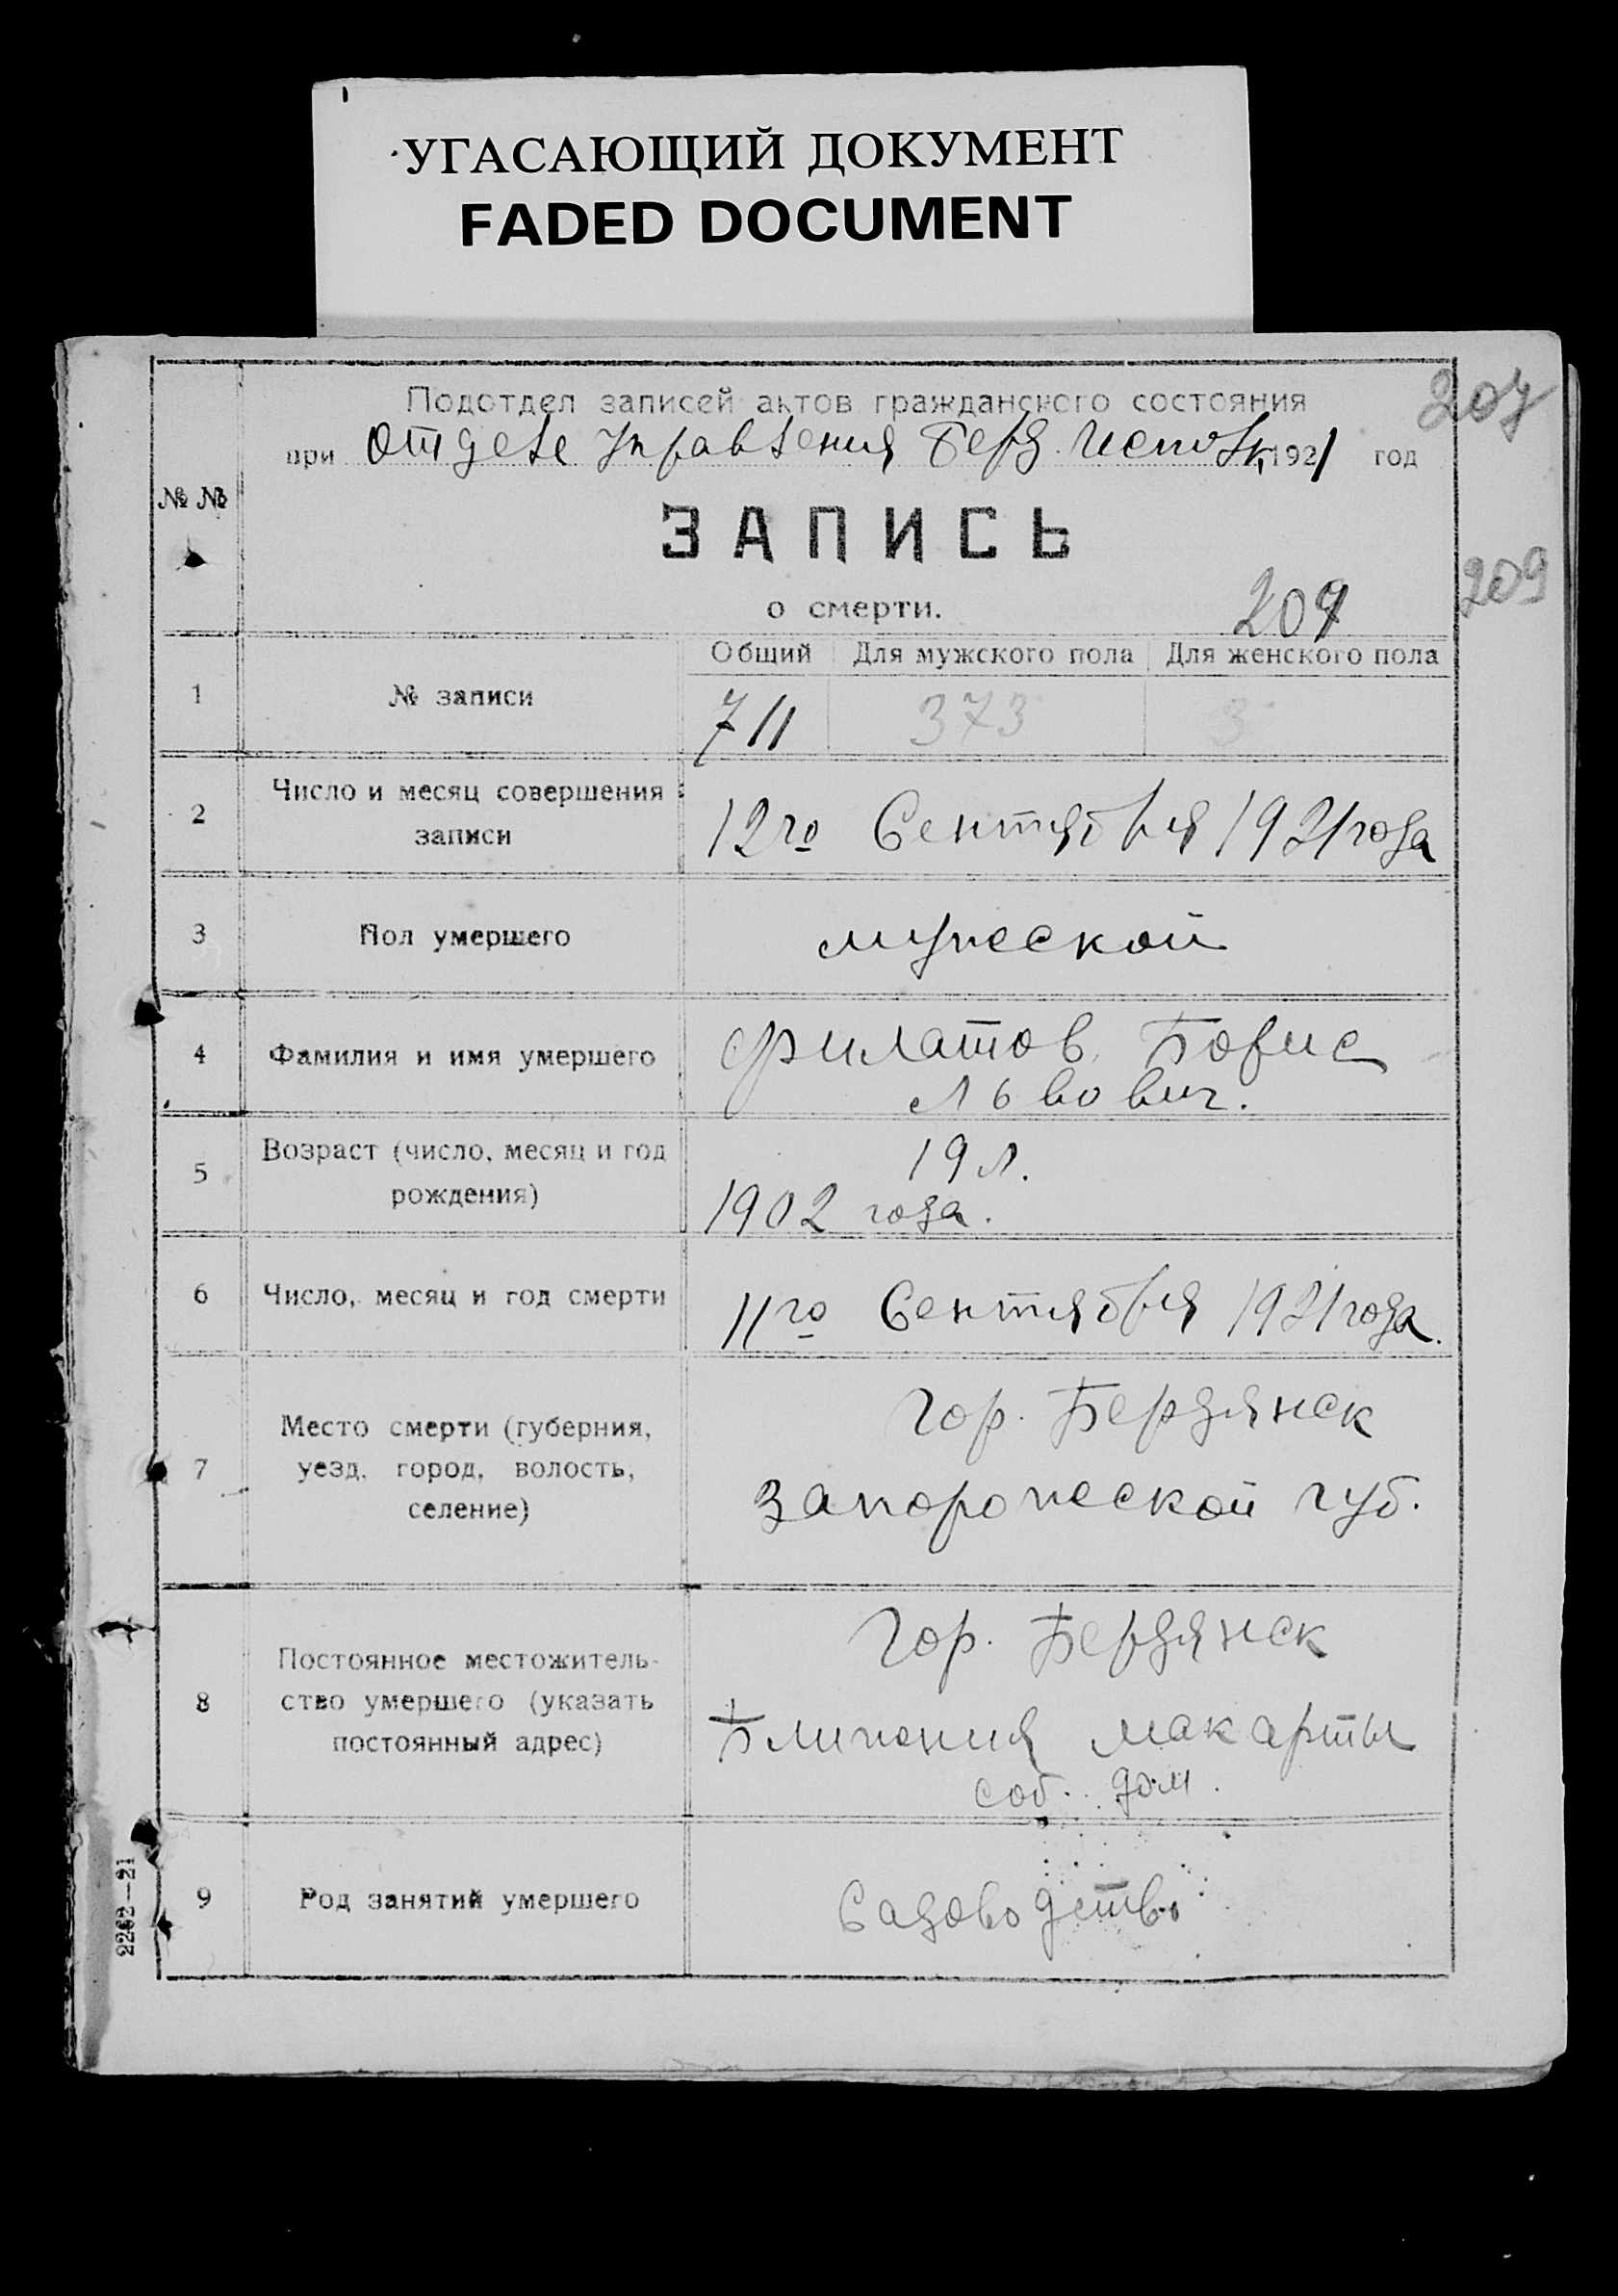 УГАСАЮЩИЙ ДОКУМЕНТ
FADED DOCUMENT
207
Подотдел записей актов гражданского состояния
при Отделе Управления Берд. Исполк. 1921 год
№ №
ЗАПИСЬ
о смерти.
209
209
Общий Для мужского пола Для женского пола
1 № записи 711 373 3
2 Число и месяц совершения
записи
12го Сентября 1921 года
3 Пол умершего мужской
4 Фамилия и имя умершего Филатов Борис
Львович.
5 Возраст (число, месяц и год
рождения)
19 л.
1902 года.
6 Число, месяц и год смерти 11го Сентября 1921 года.
7 Место смерти (губерния,
уезд, город, волость,
селение)
Гор. Бердянск
Запорожской губ.
8 Постоянное местожитель-
ство умершего (указать
постоянный адрес)
Гор. Бердянск
Ближния макорты
соб. дом.
9 Род занятий умершего Садоводство
2262—21